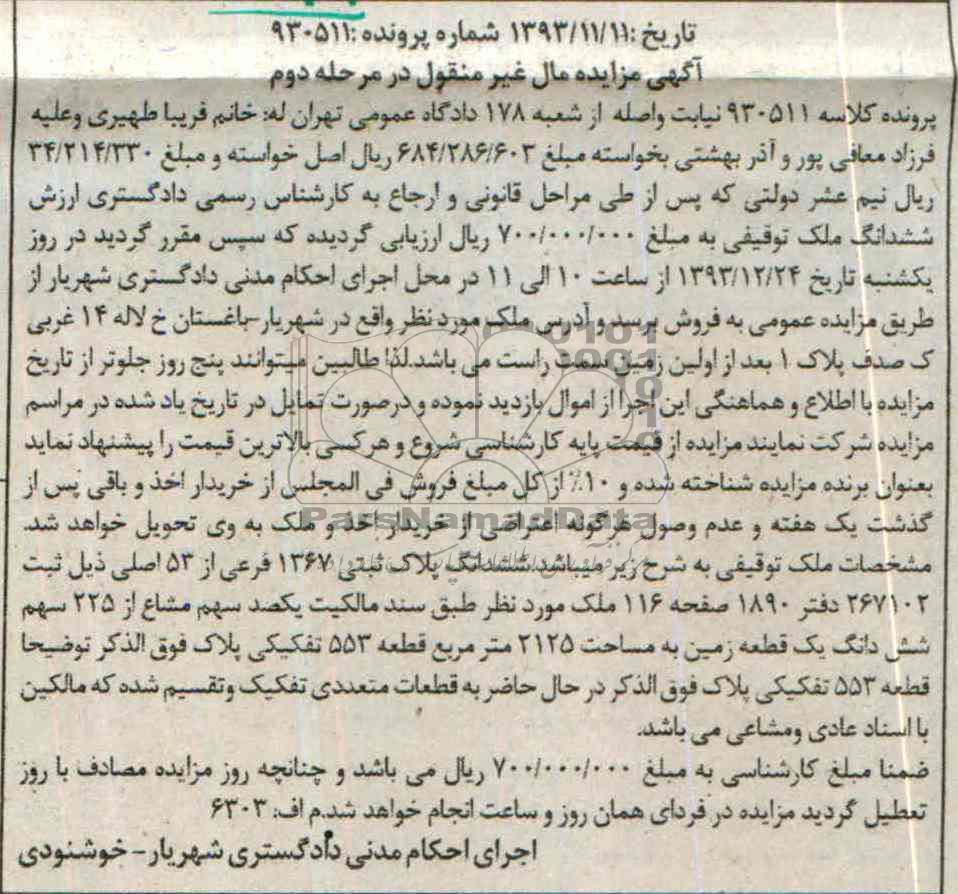 تاریخ :۱۳۹۳/۱۱/۱۱ شماره پرونده :۹۳۰۵۱۱
آگهی مزایده مال غیر منقول در مرحله دوم
پرونده کلاسه ۹۳۰۵۱۱ نیابت واصله از شعبه ۱۷۸ دادگاه عمومی تهران له: خانم فریبا طهیری وعلیه
فرزاد معافی پور و آذر بهشتی بخواسته مبلغ ۶۸۴/۲۸۶/۶۰۳ ریال اصل خواسته و مبلغ ۳۴/۲۱۴/۳۳۰
ریال نیم عشر دولتی که پس از طی مراحل قانونی و ارجاع به کارشناس رسمی دادگستری ارزش
ششدانگ ملک توقیفی به مبلغ ۷۰۰/۰۰۰/۰۰۰ ریال ارزیابی گردیده که سپس مقرر گردید در روز
یکشنبه تاریخ ۱۳۹۳/۱۲/۲۴ از ساعت ۱۰ الی ۱۱ در محل اجرای احکام مدنی دادگستری شهریار از
طریق مزایده عمومی به فروش برسد و آدرس ملک مورد نظر واقع در شهریار-باغستان خ لاله ۱۴ غربی
ک صدف پلاک ۱ بعد از اولین زمین سمت راست می باشد.لذا طالبین میتوانند پنج روز جلوتر از تاریخ
مزایده با اطلاع و هماهنگی این اجرا از اموال بازدید نموده و درصورت تمایل در تاریخ یاد شده در مراسم
مزایده شرکت نمایند مزایده از قیمت پایه کارشناسی شروع و هرکسی بالاترین قیمت را پیشنهاد نماید
بعنوان برنده مزایده شناخته شده و ۱۰٪ از کل مبلغ فروش فی المجلس از خریدار اخذ و باقی پس از
گذشت یک هفته و عدم وصول هرگونه اعتراضی از خریدار اخذ و ملک به وی تحویل خواهد شد.
مشخصات ملک توقیفی به شرح زیر میباشد ششدانگ پلاک ثبتی ۱۳۶۷ فرعی از ۵۳ اصلی ذیل ثبت
۲۶۷۱۰۲ دفتر ۱۸۹۰ صفحه ۱۱۶ ملک مورد نظر طبق سند مالکیت یکصد سهم مشاع از ۲۲۵ سهم
شش دانگ یک قطعه زمین به مساحت ۲۱۲۵ متر مربع قطعه ۵۵۳ تفکیکی پلاک فوق الذکر توضیحا
قطعه ۵۵۳ تفکیکی پلاک فوق الذکر در حال حاضر به قطعات متعددی تفکیک وتقسیم شده که مالکین
با اسناد عادی ومشاعی می باشد.
ضمنا مبلغ کارشناسی به مبلغ ۷۰۰/۰۰۰/۰۰۰ ریال می باشد و چنانچه روز مزایده مصادف با روز
تعطیل گردید مزایده در فردای همان روز و ساعت انجام خواهد شد.م اف: ۶۳۰۳
اجرای احکام مدنی دادگستری شهریار- خوشنودی
ParsNamadData